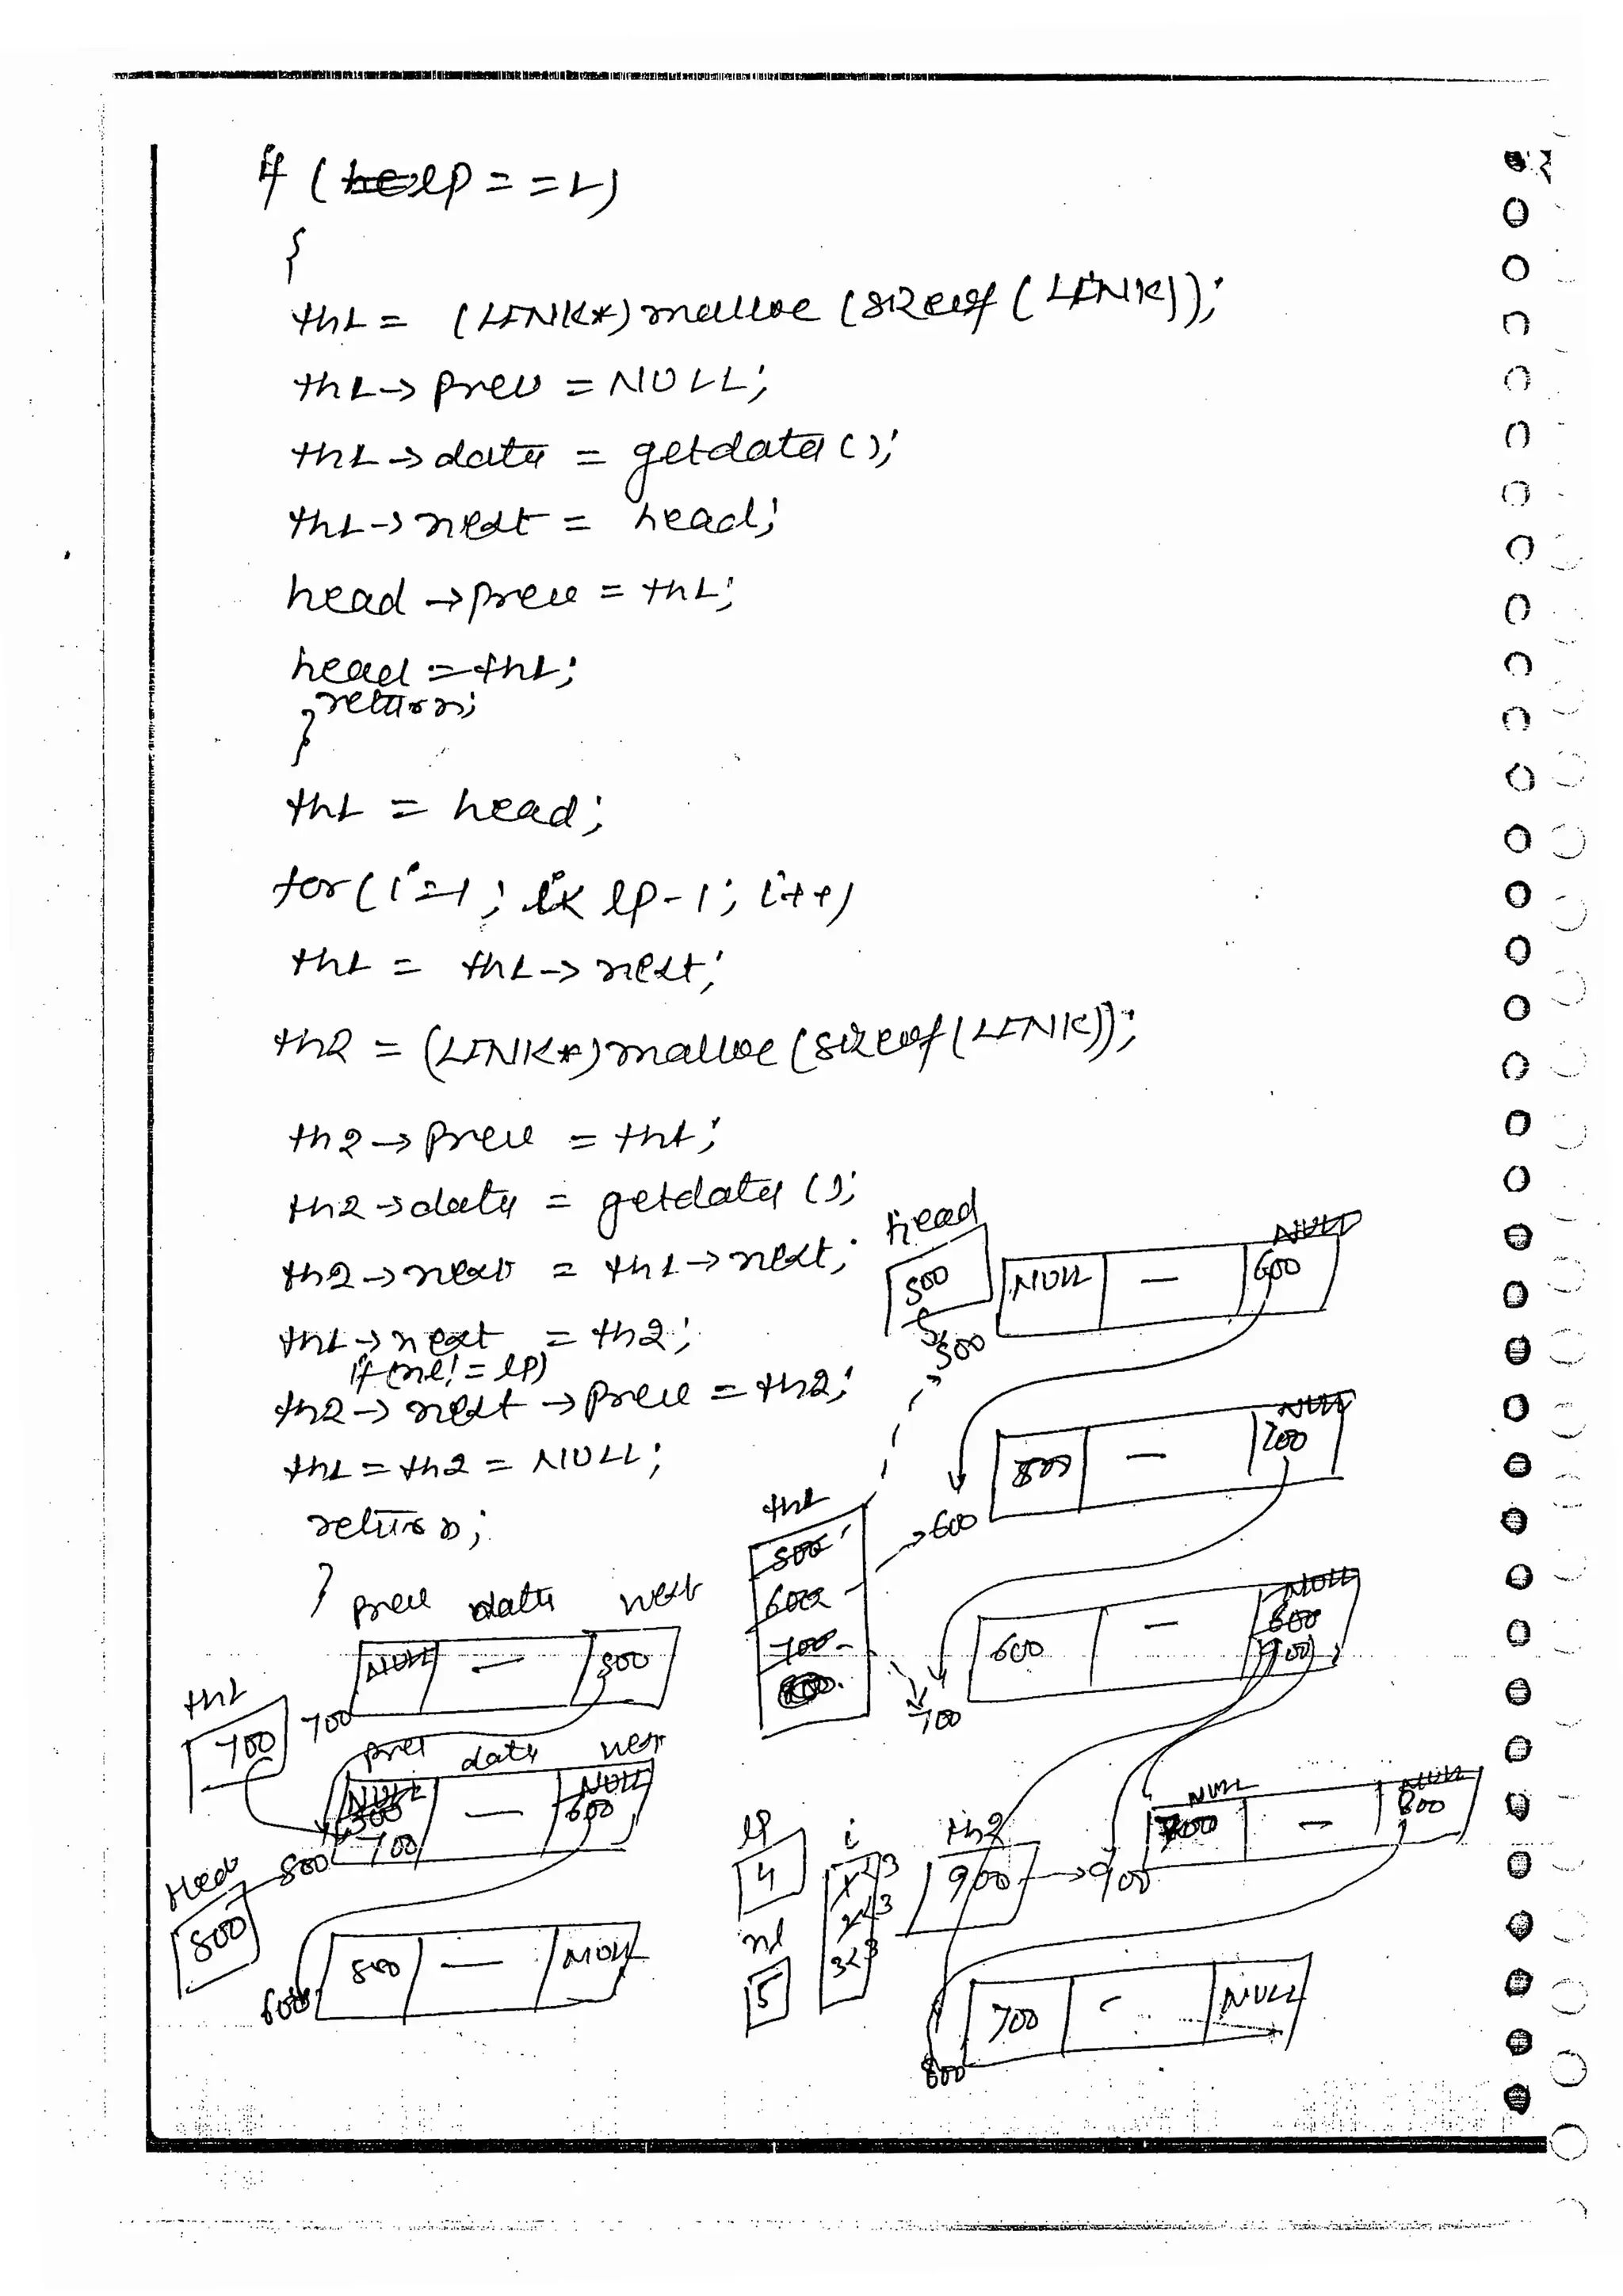 if (lp == 1)
{
th1 = (LINK*) malloc (sizeof (LINK));
th1 -> prev = NULL;
th1 -> data = getdata ();
th1 -> next = head;
head -> prev = th1;
head = th1;
return;
}
th1 = head;
for (i=1; i< lp-1; i++)
th1 = th1 -> next;
th2 = (LINK*) malloc (sizeof (LINK));
th2 -> prev = th1;
th2 -> data = getdata ();
th2 -> next = th1 -> next;
th1 -> next = th2;
if (nl != lp)
th2 -> next -> prev = th2;
th1 = th2 = NULL;
return;
}
head
500 NULL — NULL 600
500
500 — NULL 700
th1
500 600 700
600
600 — NULL 800 900
700
prev data next
NULL — 500
th1
700 700
prev data next
NULL 500 700 — NULL 600
Head
500 500
500 — NULL
600
lp
4
nl
5
i
1<3
2<3
3<3
th2
900 900
NULL 700 — NULL 800
700 - NULL
800